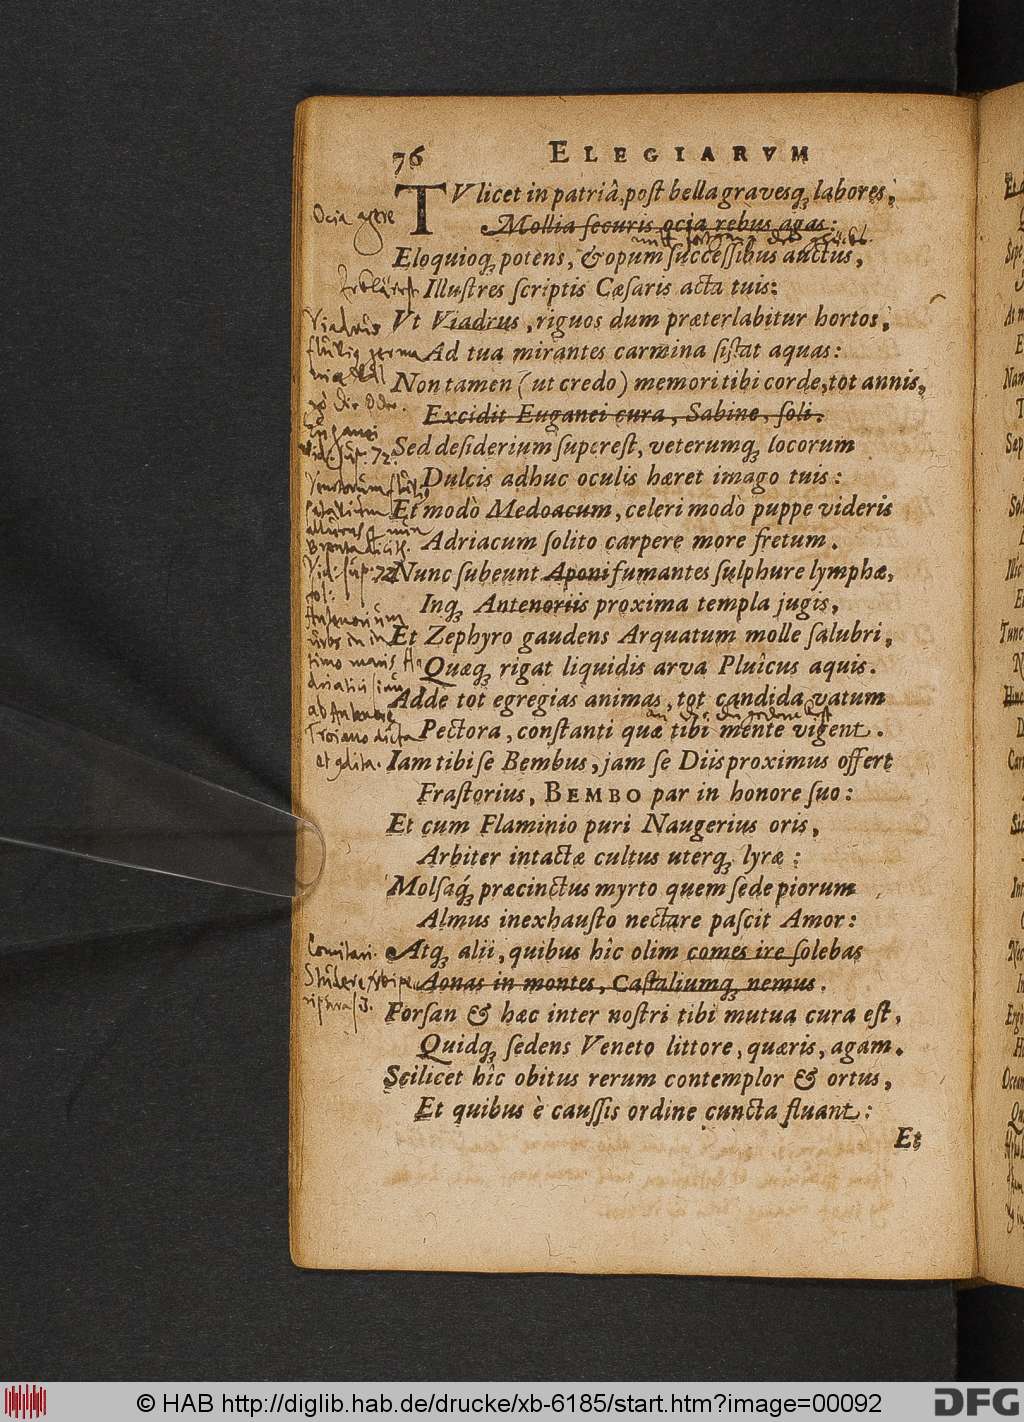 76 ELEGIARVM
TV licet in patriâ, post bella gravesq́ꝫ labores,
Mollia securis ocia rebus agas:
Eloquioqꝫ potens, & opum successibus auctus,
Illustres scriptis Cæsaris acta tuis:
Vt Viadrus, riguos dum præterlabitur hortos,
Ad tua mirantes carmina sistat aquas:
Non tamen (ut credo) memori tibi corde, tot annis,
Excidit Euganei cura, Sabine, soli.
Sed desiderium superest, veterumqꝫ locorum
Dulcis adhuc oculis hæret imago tuis:
Et modò Medoacum, celeri modò puppe videris
Adriacum solito carpere more fretum.
Nunc subeunt Aponi fumantes sulphure lymphæ,
Inqꝫ Antenoriis proxima templa jugis,
Et Zephyro gaudens Arquatum molle salubri,
Quæqꝫ rigat liquidis arva Pluîcus aquis.
Adde tot egregias animas, tot candida vatum
Pectora, constanti quæ tibi mente vigent.
Iam tibi se Bembus, jam se Diis proximus offert
Frastorius, BEMBO par in honore suo:
Et cum Flaminio puri Naugerius oris,
Arbiter intactæ cultus uterqꝫ lyræ:
Molsaq́ꝫ præcinctus myrto quem sede piorum
Almus inexhausto nectare pascit Amor:
Atqꝫ alii, quibus hîc olim comes ire solebas
Aonas in montes, Castaliumqꝫ nemus.
Forsan & hæc inter nostri tibi mutua cura est,
Quidqꝫ sedens Veneto littore, quæris, agam.
Scilicet hîc obitus rerum contemplor & ortus,
Et quibus è caussis ordine cuncta fluant:
Et
Ocia agere
Viadrus
Euganei
Vid: sup: 72.
Vid: sup: 72
Troiano dicta
et condita.
Comitari.
© HAB http://diglib.hab.de/drucke/xb-6185/start.htm?image=00092
DFG